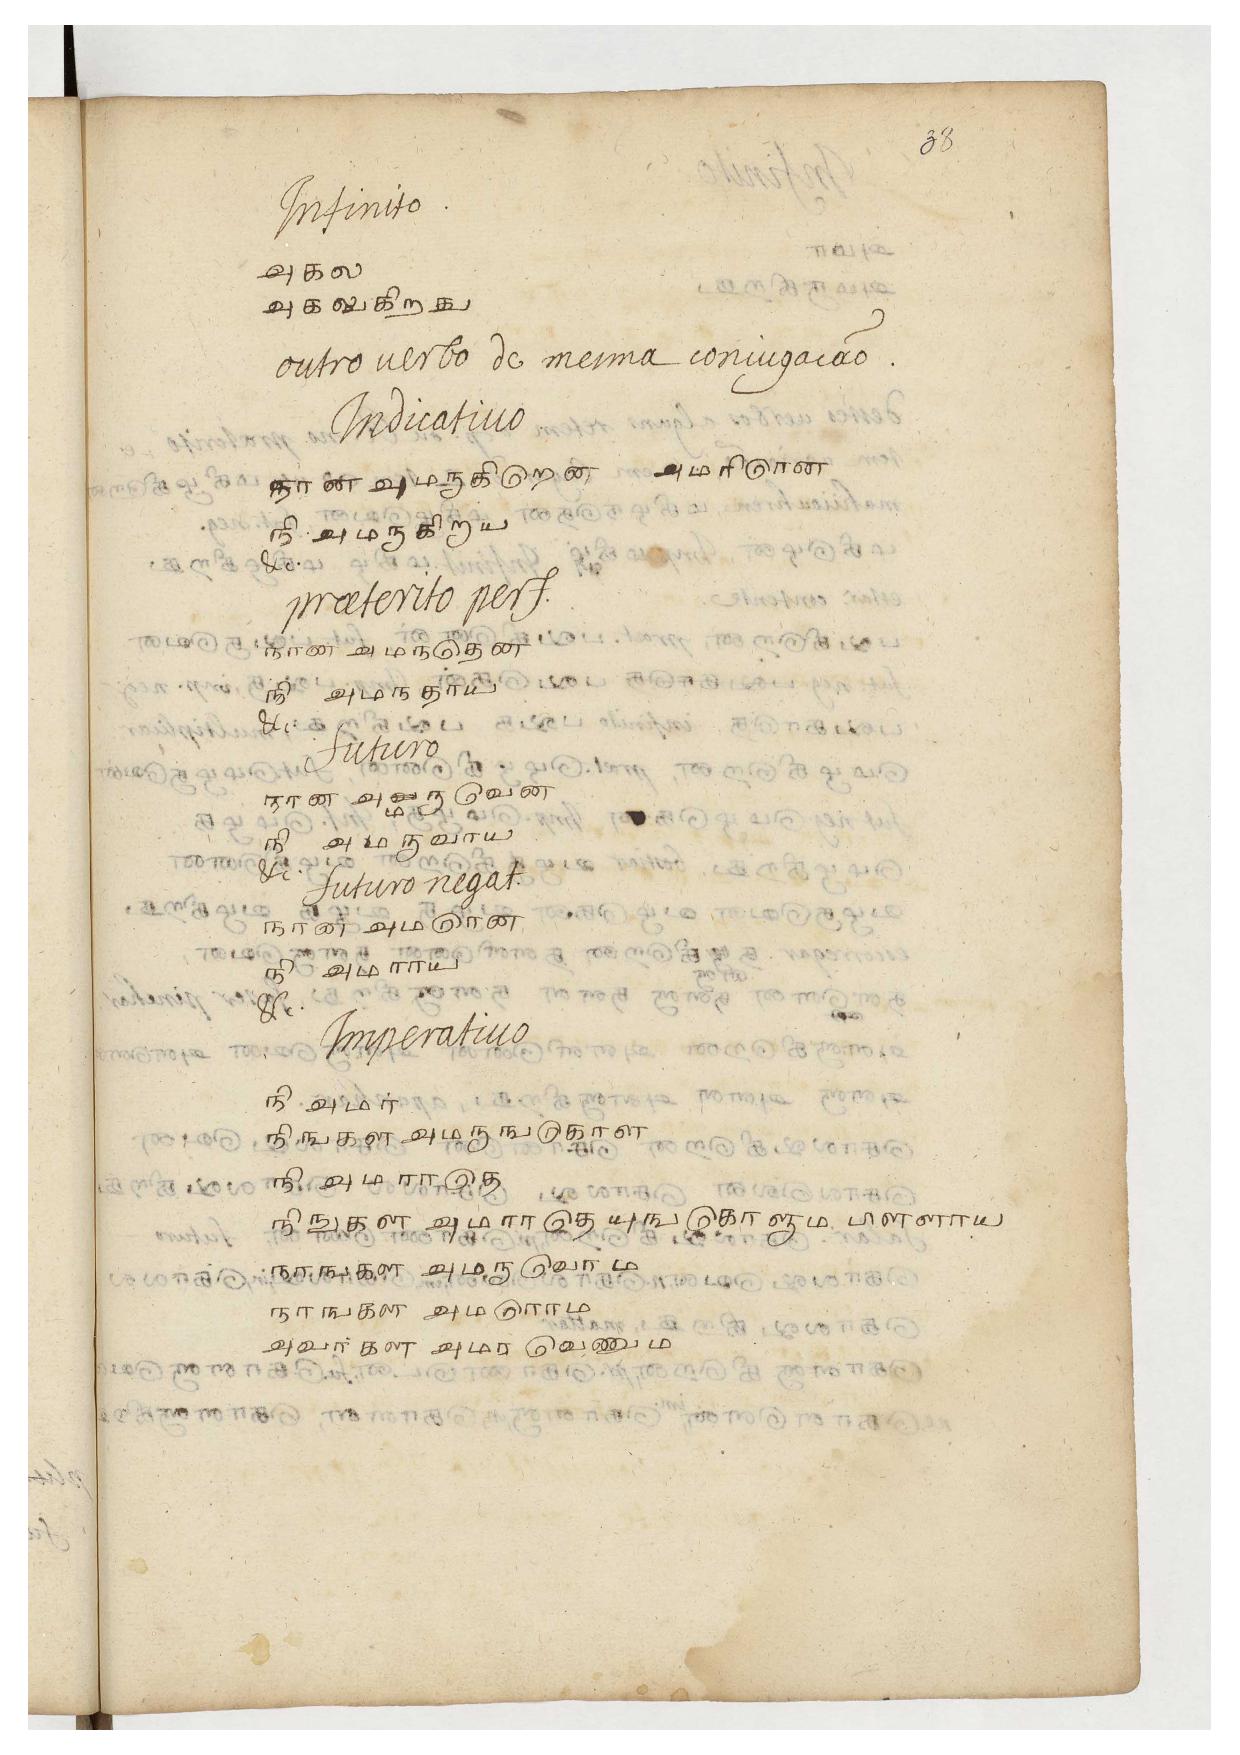 38
Infinito.
அகல
அகலுகிறது
outro uerbo da mesma coniugação.
Indicatiuo
நான அமருகிறென அமரிறொன
நி அமருகிறாய
&c.
præterito perf.
நான அமநதென
நி அமநதாய
&c.
futuro
நான அமருவென
நி அமருவாய
&c.
futuro negat.
நான அமரென
நி அமராய
&c.
Imperatiuo
நி அமர்
நிஙகள அமருஙகொள
நி அமராதெ
நிஙகள அமராதெயுஙகொளும பிளளாய
நாஙகள அமருவொம
நாஙகள அமரொம
அவர்கள அமர வெணும